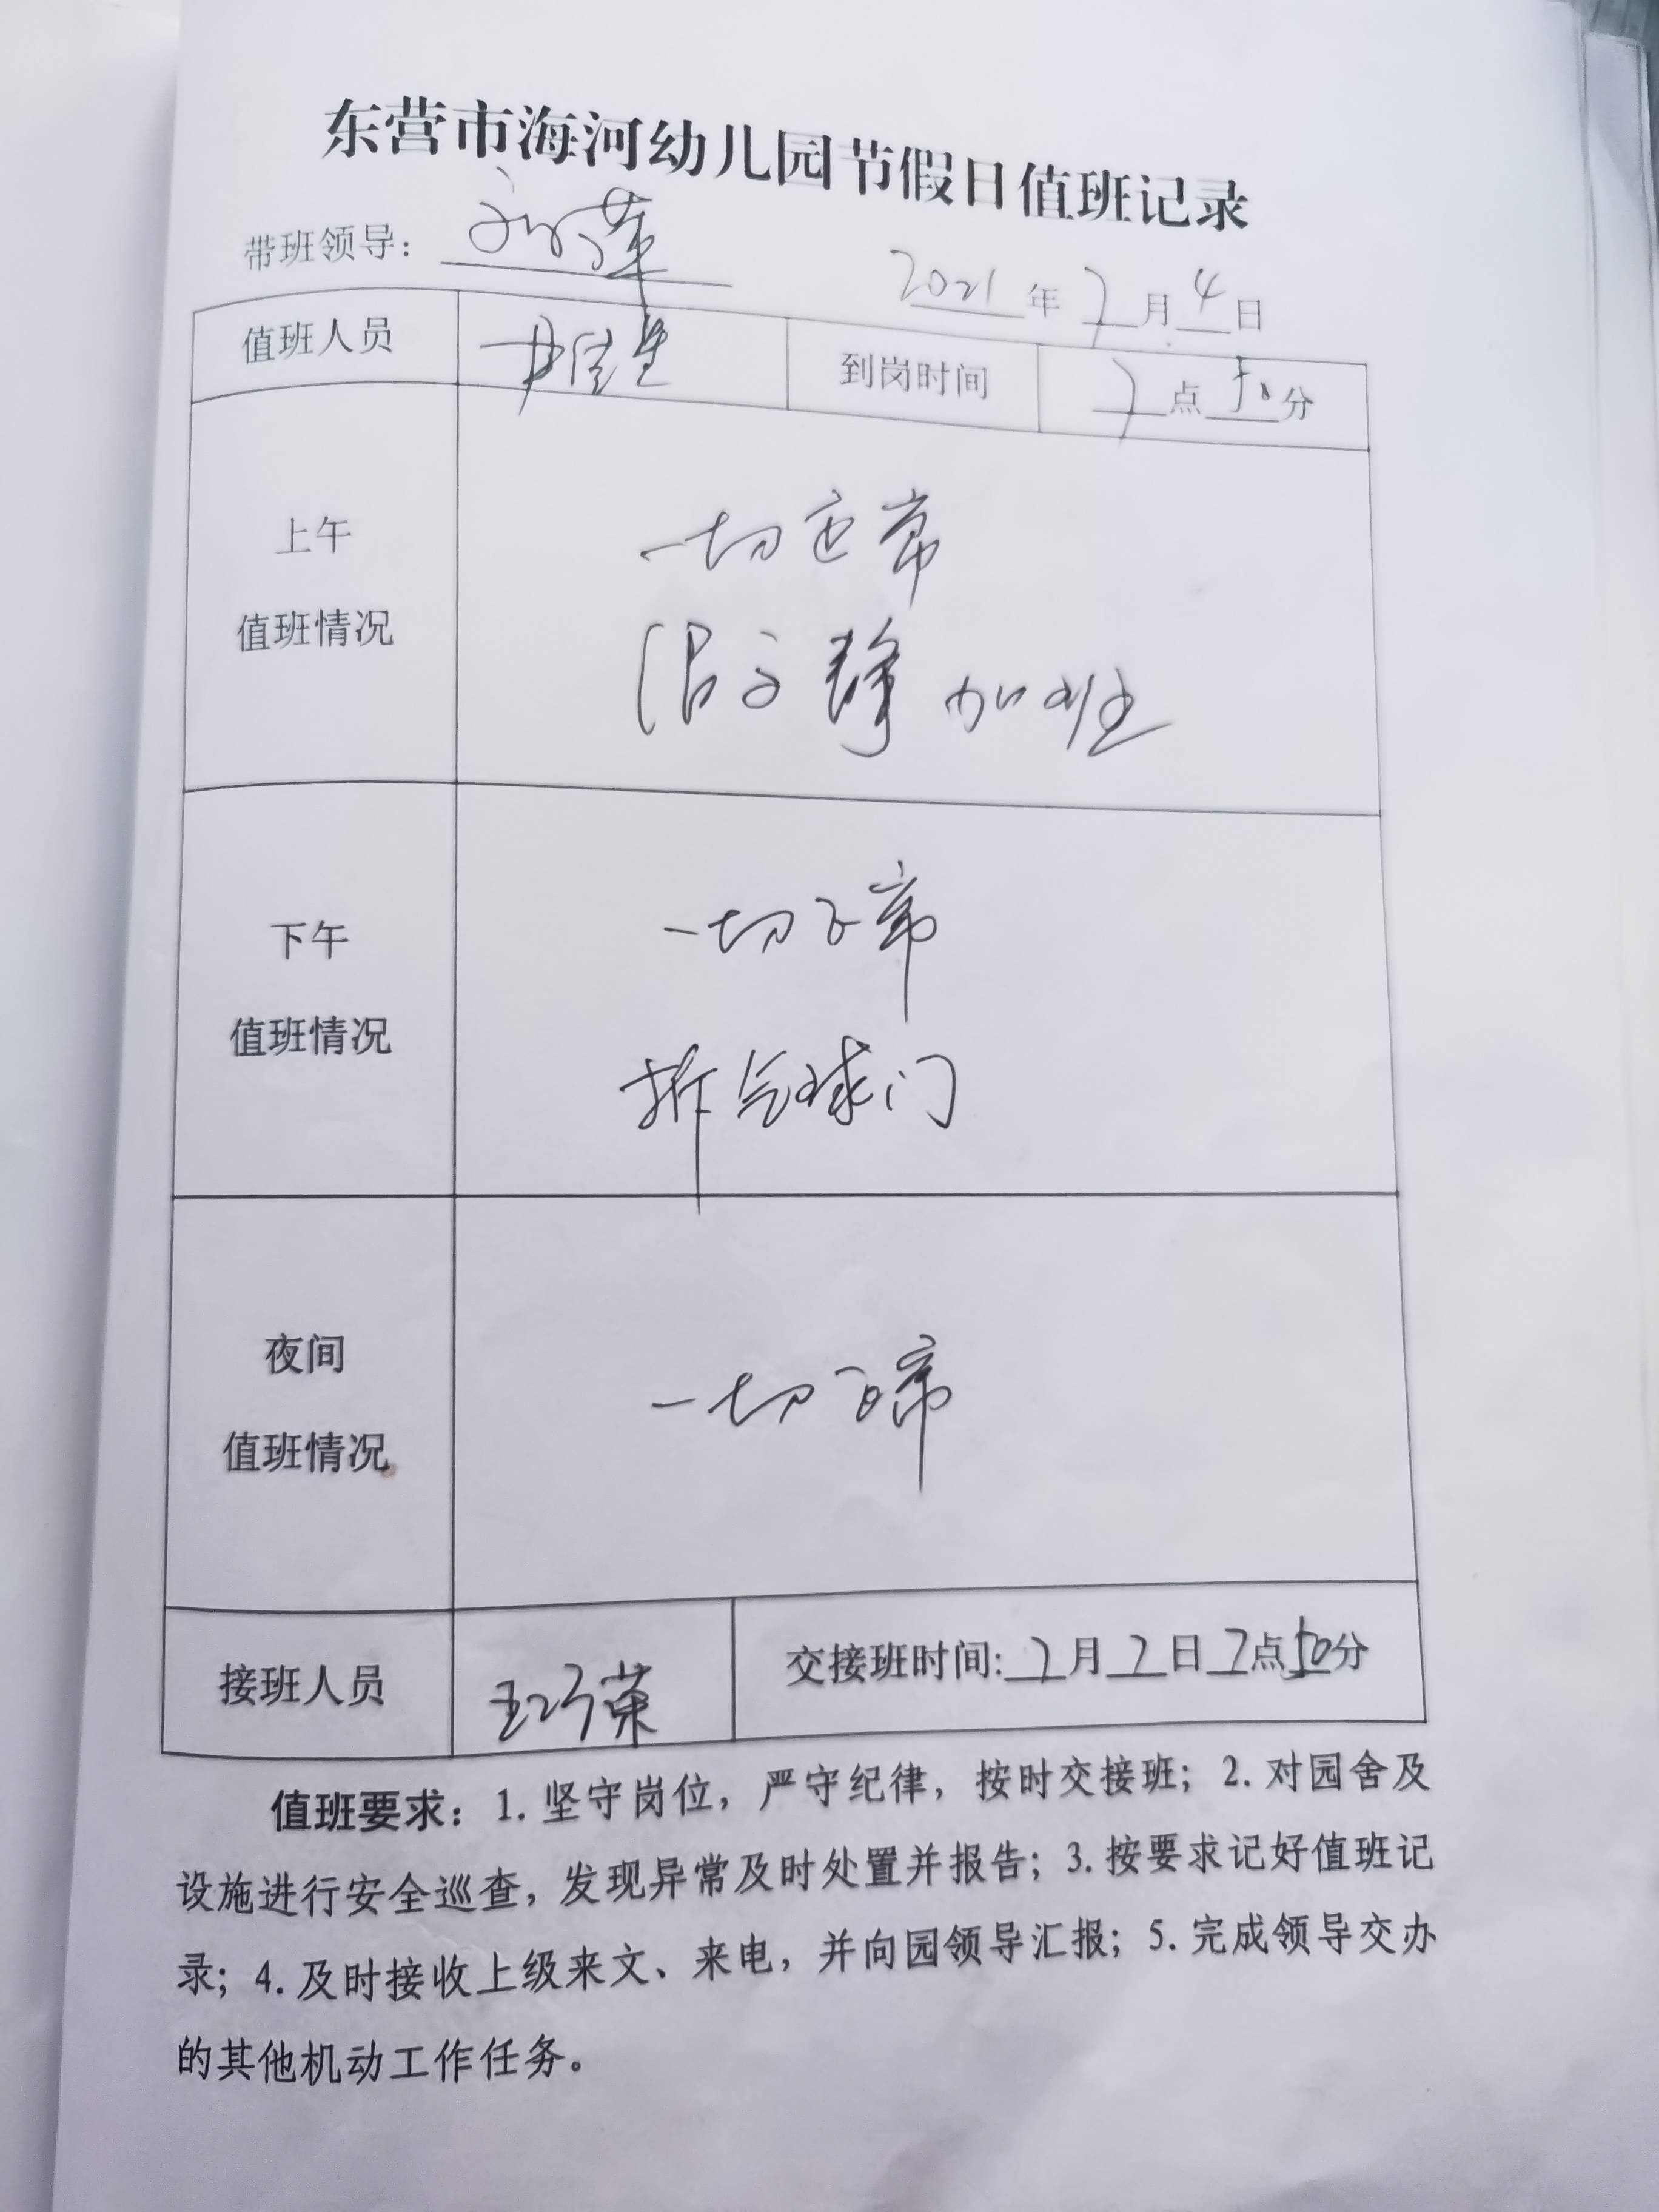 东营市海河幼儿园节假日值班记录
带班领导： 2021年7月4日
值班人员 到岗时间 7点50分
一切正常
加班
上午
值班情况
一切正常
拆气球门
下午
值班情况
一切正常
夜间
值班情况
接班人员 王巧荣 交接班时间:7月2日7点50分
值班要求：1. 坚守岗位，严守纪律，按时交接班；2. 对园舍及
设施进行安全巡查，发现异常及时处置并报告；3. 按要求记好值班记
录；4. 及时接收上级来文、来电，并向园领导汇报；5. 完成领导交办
的其他机动工作任务。